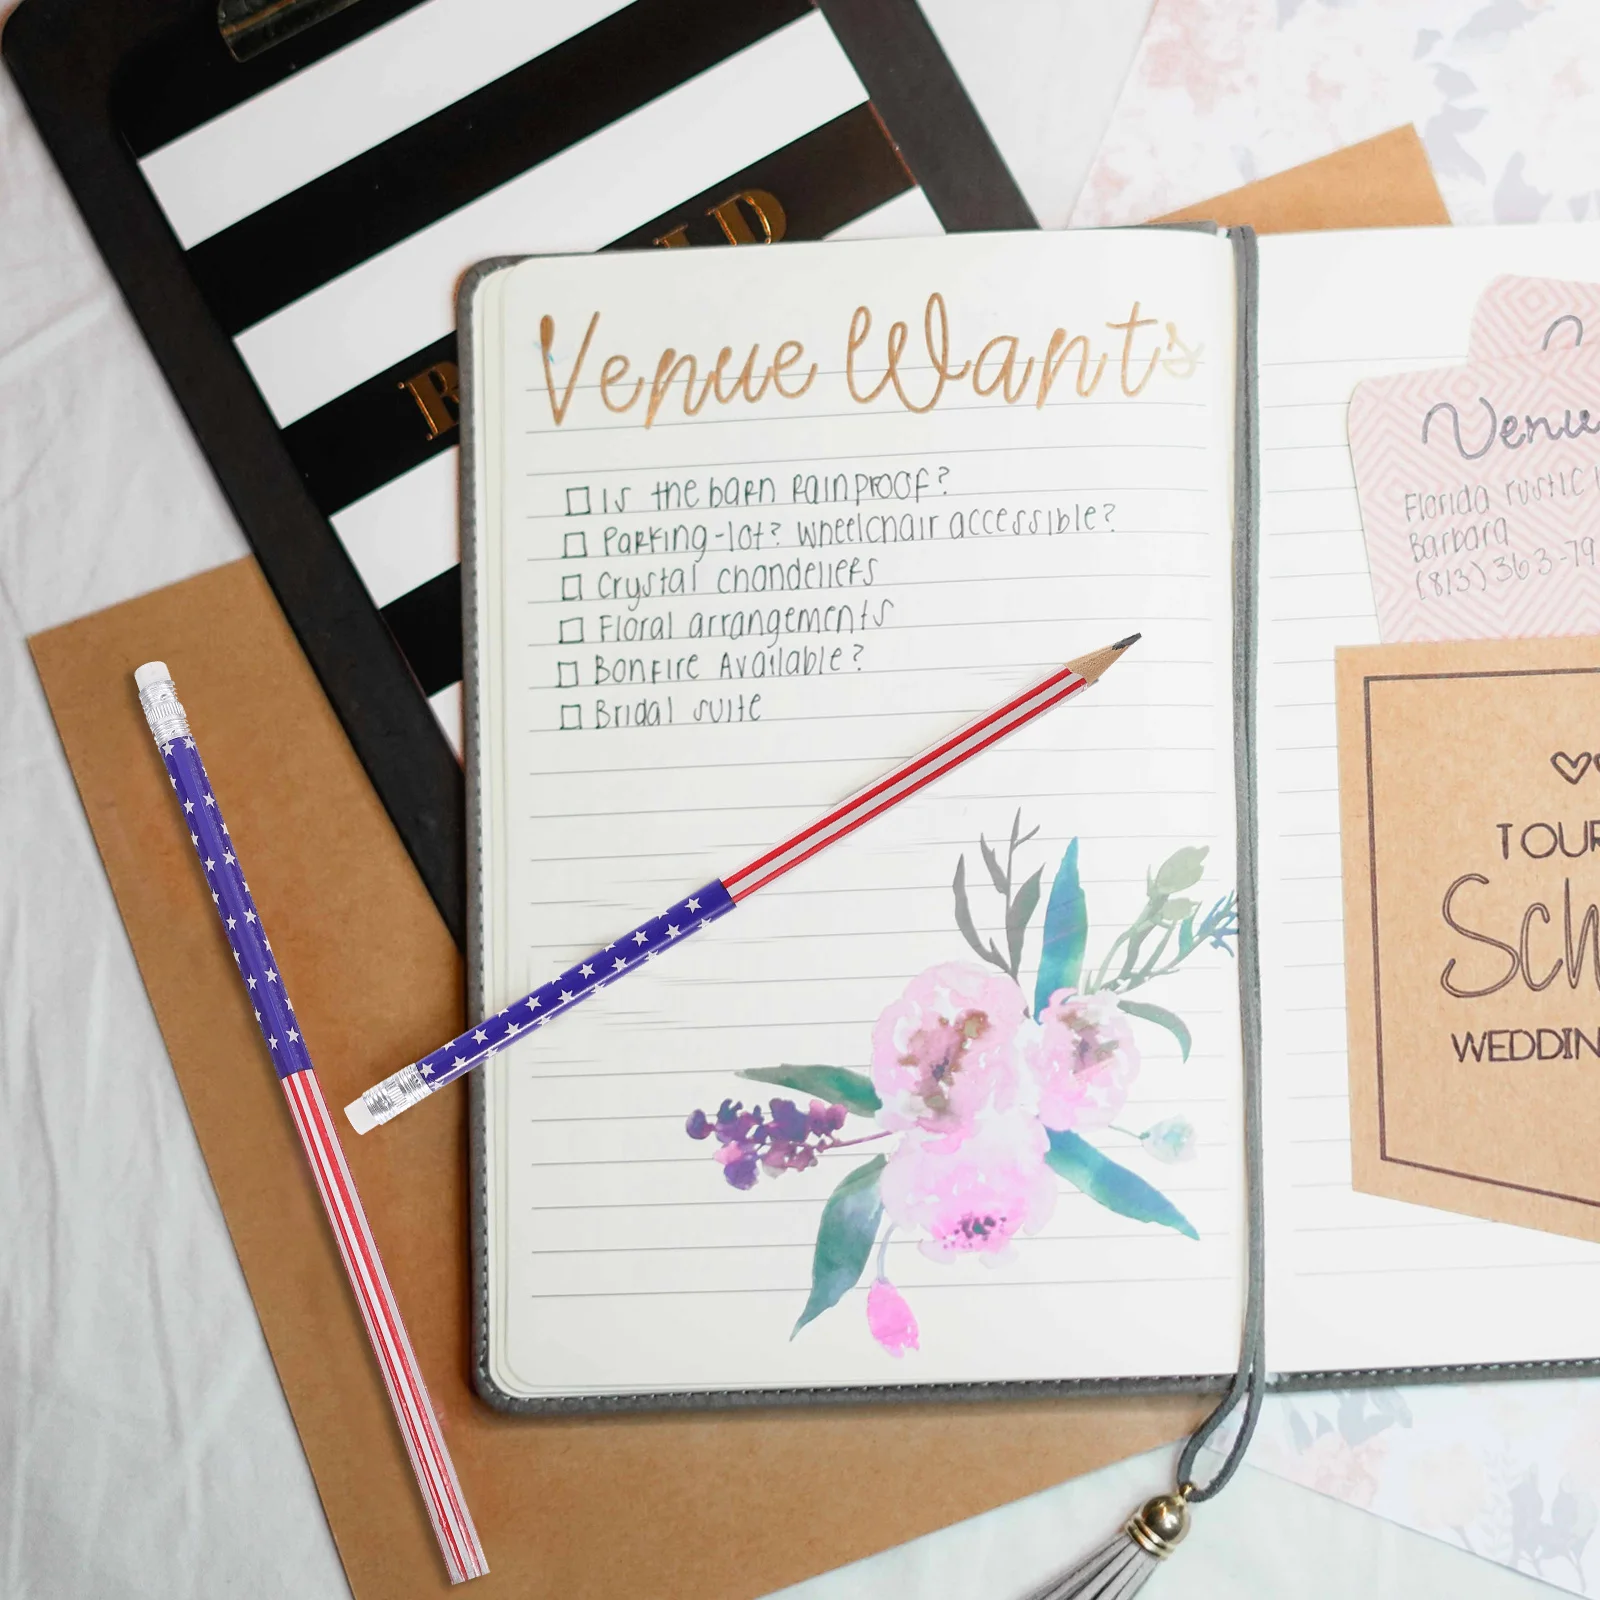 Venue Wants
Is the barn rainproof?
Parking-lot? wheelchair accessible?
Crystal chandeliers
Floral arrangements
Bonfire Available?
Bridal suite
Venu
Florida rustic
Barbara
(813) 363-79
TOUR
Sch
WEDDIN